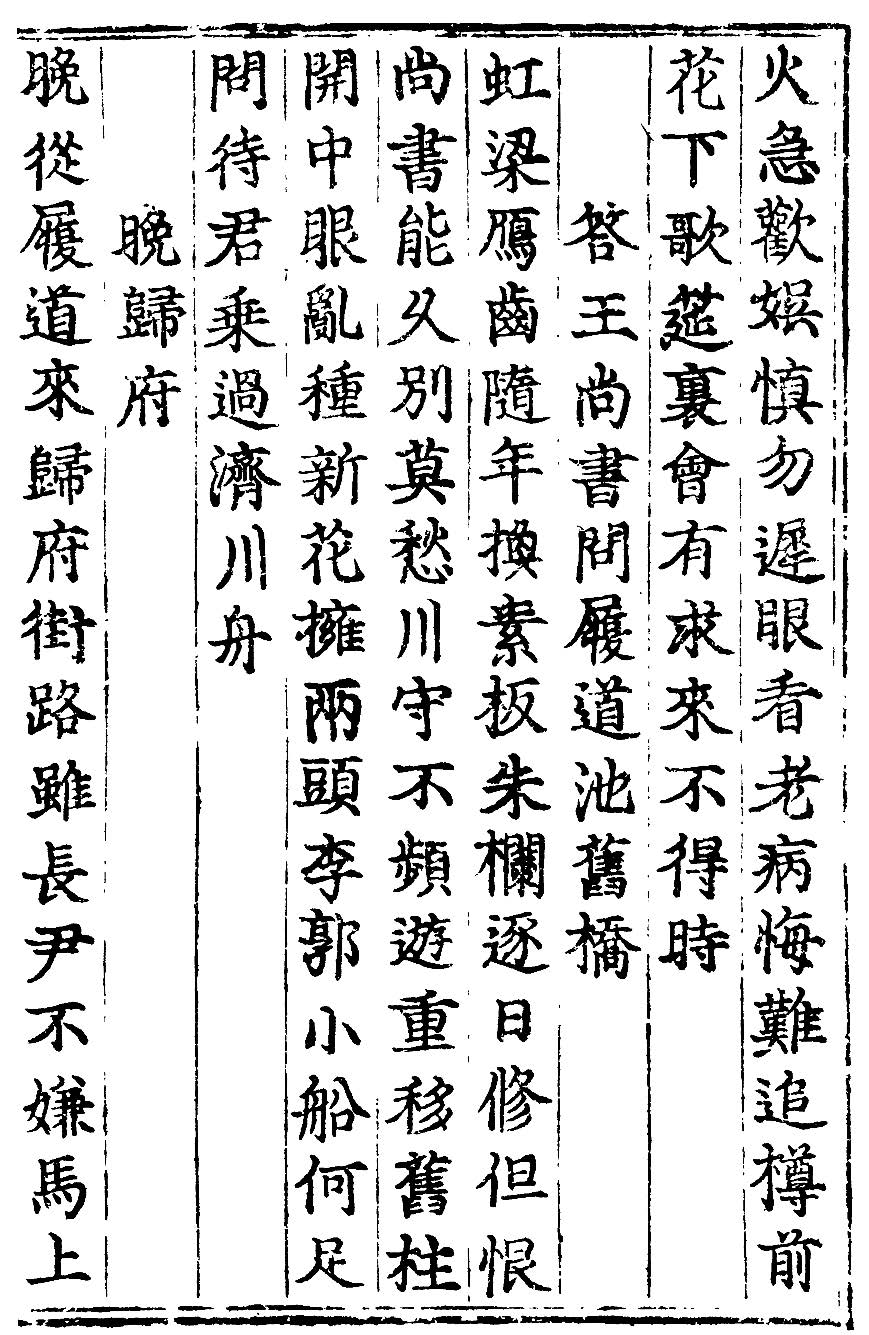 火急歡娛慎勿遲眼看老病悔難追樽前
花下歌筵裏會有求來不得時
答王尚書問履道池舊橋
虹梁鴈齒隨年換素板朱欄逐日修但恨
尚書能久別莫愁川守不頻遊重移舊柱
開中眼亂種新花擁兩頭李郭小船何足
問待君乗過濟川舟
晚歸府
晚從履道來歸府街路雖長尹不嫌馬上